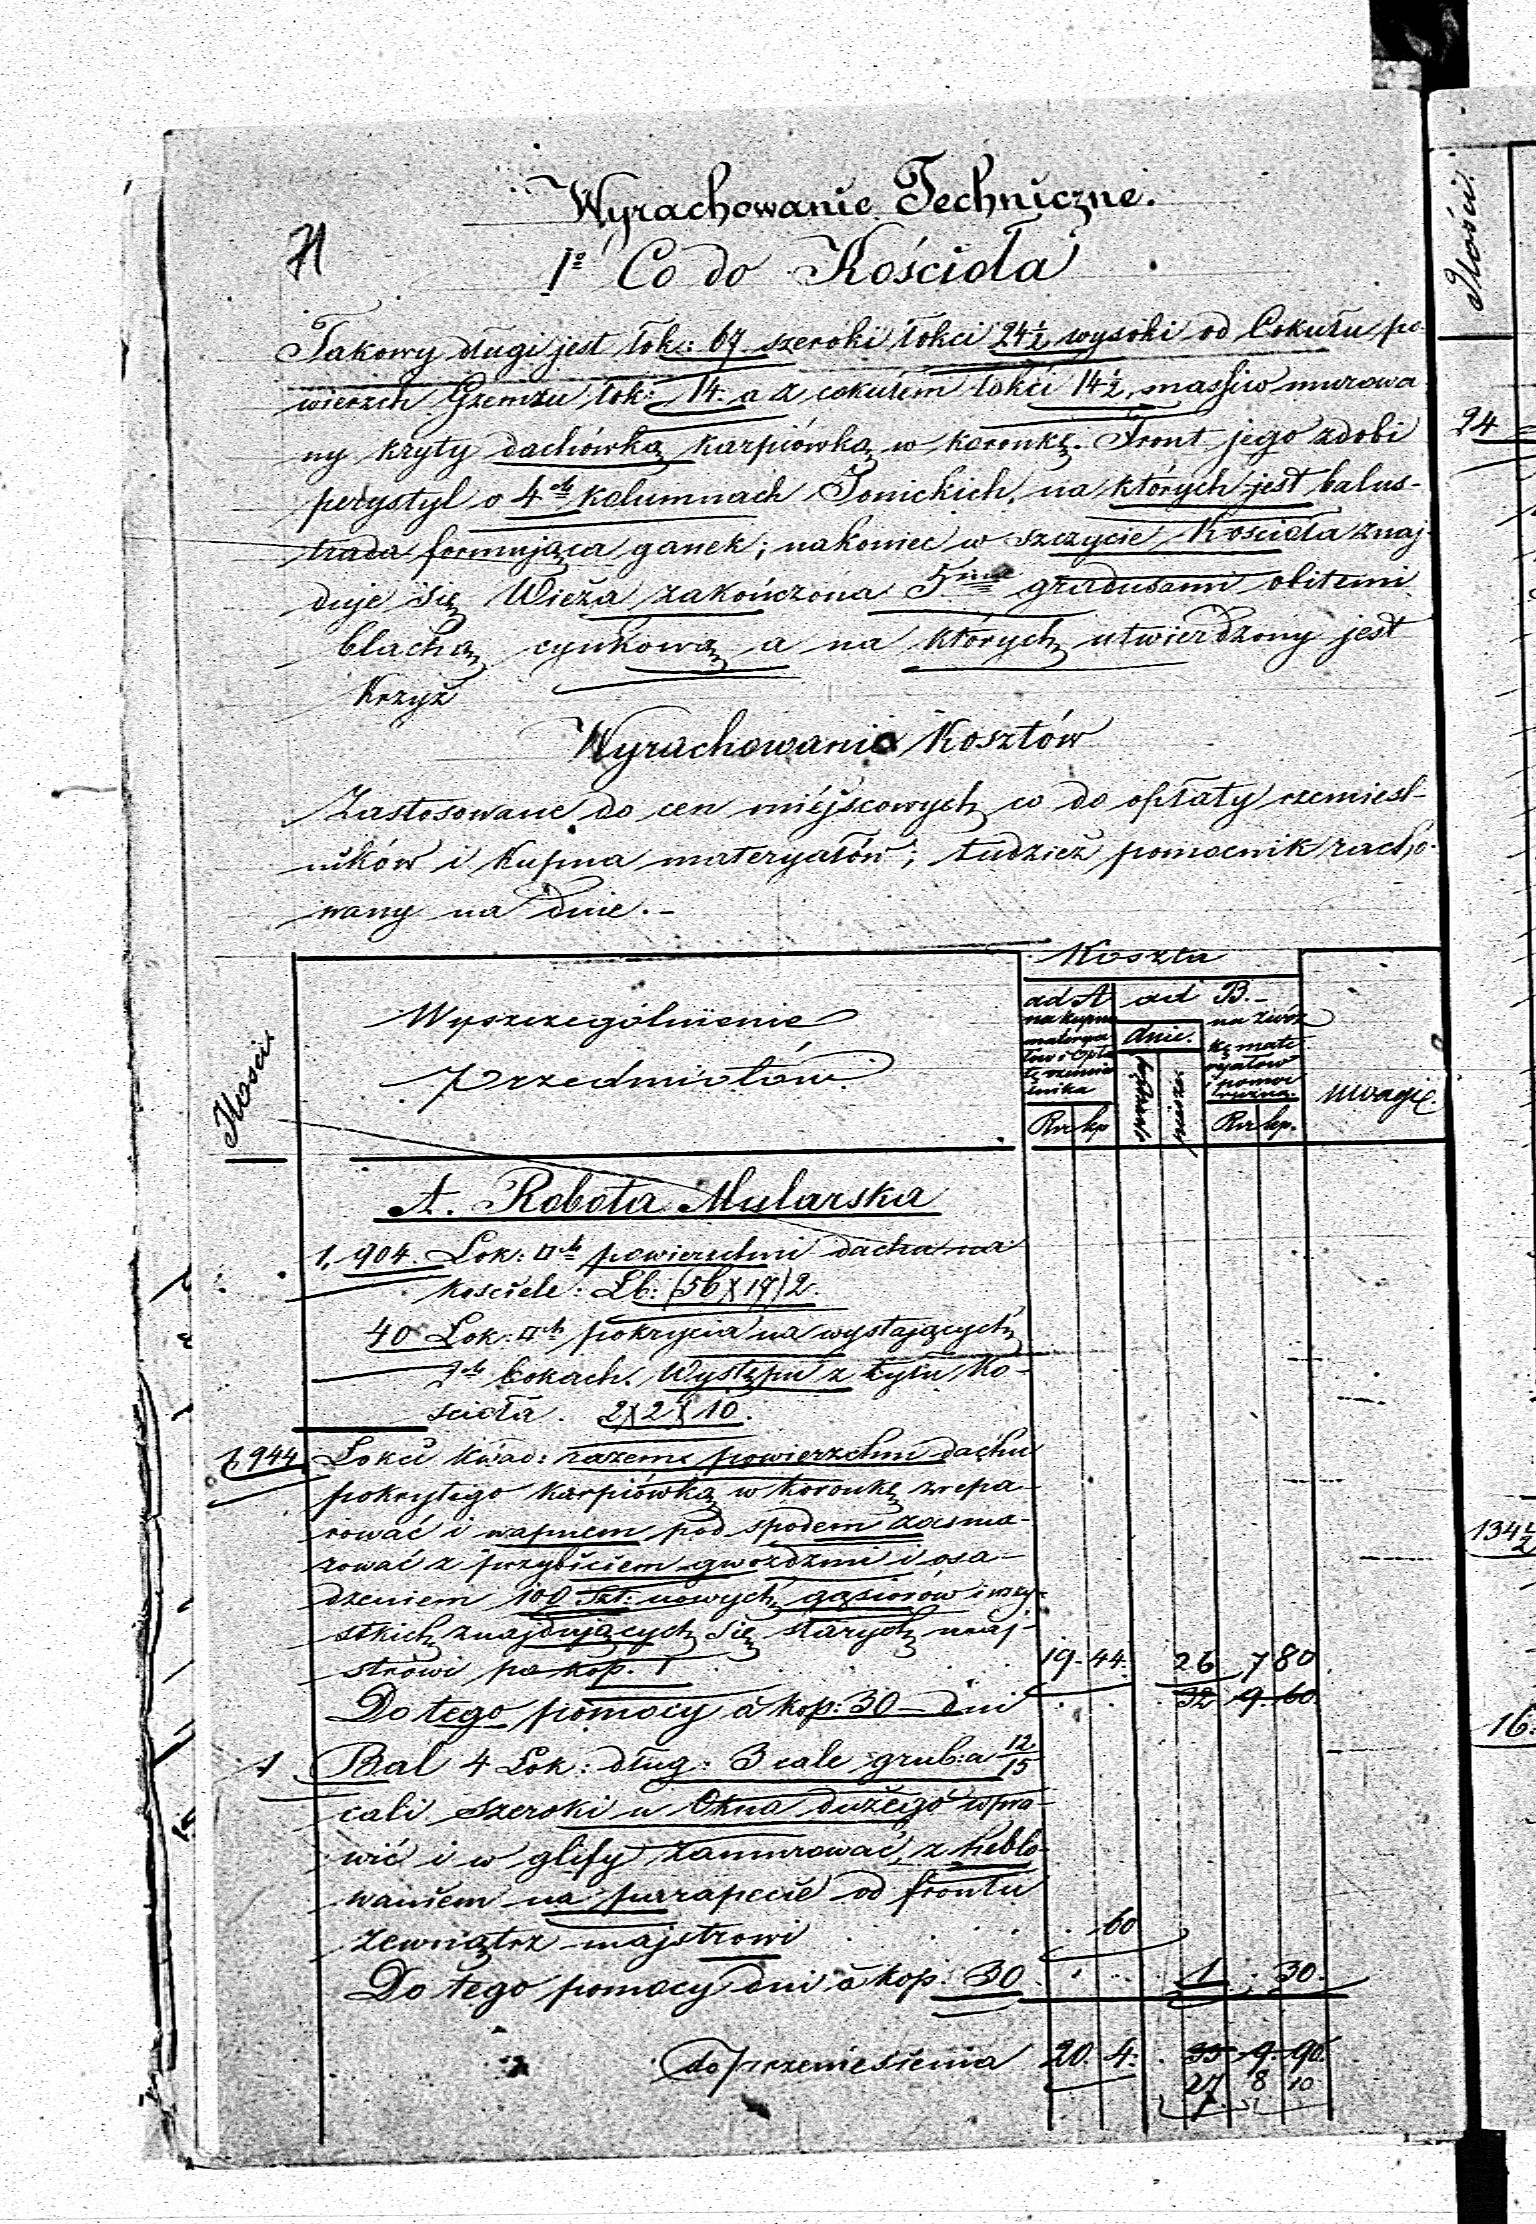 Wyrachowanie Techniczne.
71
1º Co do Kościoła
Takowy długi jest łok: 67. szeroki łokci 24½ wysoki od Cokułu po-
wierzch Gzemzu łok: 14. a z cokułem łokci 14½, massiw murowa
ny kryty dachówką karpiówką w koronkę. Front jego zdobi
perystyl o 4ch kolumnach Jonickich, na których jest balus-
trada formująca ganek; nakoniec w szczycie Kościoła znaj-
duje się Wieża zakończona 5ma gradusami obitemi
blachą cynkową a na których utwierdzony jest
Krzyż
Wyrachowanie Kosztów
Zastosowane do cen miéjscowych co do opłaty rzemieśl-
ników i Kupna materyałów; tudzież pomocnik racho-
wany na dnie.-
Ilości.
Wyszczególnienie
Przedmiotów.
Koszta
ad A
na kupno
materya
łów i Opła
tę rzemie
ślnika
Rs kp
ad B.-
dnie.
piesze
na zwóz
kę mate
ryałów
i pomoc
Rs kp.
uwagi.
A. Robota Mularska
1,904. Łok: □ch powierzchni dachu na
kościele: Lb: (56 X 17) 2.
40 Łok: □ch pokrycia na wystających
2ch bokach. Występu z tyłu Ko-
ścioła. 2 X 2 X 10.
1,944 Łokci kwad: razem powierzchni dachu
pokrytego karpiówką w koronkę zrepa-
rować i wapnem pod spodem zasma-
rować z przybiciem gwoździmi i osa-
dzeniem 100 Szt: nowych gąsiorów i wszy-
stkich znajdujących się starych maj-
strowi po kop. 1 19. 44. 26 7 80
Do tego pomocy a kop: 30 - dni 32 9. 60.
1 Bal 4 Łok: dług: 3 cale grub: a 12/15
cali szeroki u Okna dużego wpra-
wić i w glify zamurować, z heblo-
waniem na parapecie od frontu
zewnątrz majstrowi . 60
Do tego pomocy dni a kop: 30 1 . 30.
do przeniesienia 20. 4. 33 9. 90.
27 8 10
Ilości.
24
134½
16.